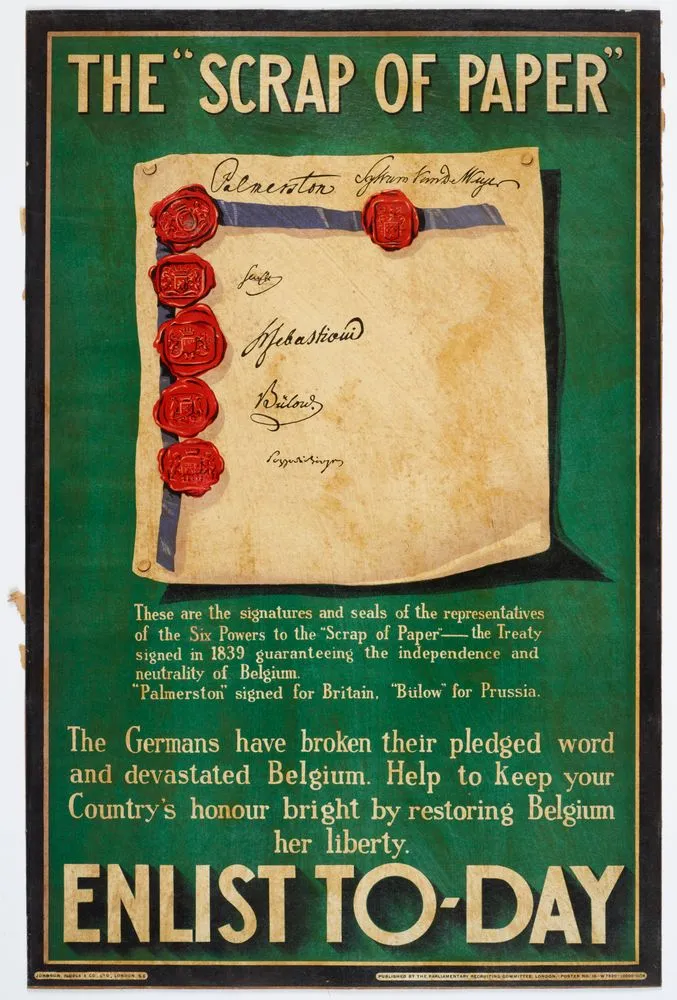 THE "SCRAP OF PAPER"
Palmerston Sylvain Van de Weyer
Senfft
H Sebastiani
Bülow.
Pozzo di Borgo
These are the signatures and seals of the representatives
of the Six Powers to the "Scrap of Paper"—the Treaty
signed in 1839 guaranteeing the independence and
neutrality of Belgium.
"Palmerston" signed for Britain, "Bülow" for Prussia.
The Germans have broken their pledged word
and devastated Belgium. Help to keep your
Country's honour bright by restoring Belgium
her liberty.
ENLIST TO-DAY
JOHNSON, RIDDLE & CO., LTD., LONDON, S.E.
PUBLISHED BY THE PARLIAMENTARY RECRUITING COMMITTEE, LONDON.—POSTER NO. 15